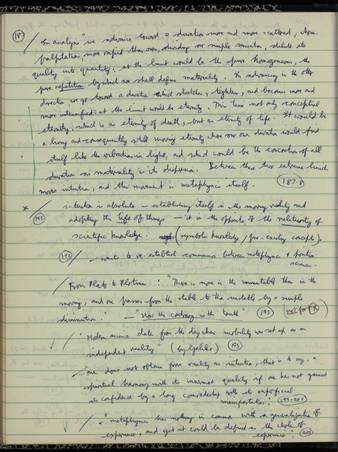 In analysis we advance toward a duration more and more scattered, whose
palpitation, more rapid than ours, dividing our simple sensation, dilutes its
quality into quantity; at the limit would be the pure homogeneous, the
pure repetition by which we shall define materiality. In advancing in the other
direction we go toward a duration which stretches, tightens, and becomes more and
more intensified; at the limit would be eternity. This time not only conceptual
eternity, which is an eternity of death, but an eternity of life. It would be
a living and consequently still moving eternity where our own duration would find
itself like the vibrations in light, and which would be the concretion of all
duration as materiality is its dispersion. Between these two extreme limits
moves intuition, and this movement is metaphysics itself. (187-8)
intuition is absolute — establishing itself in the moving reality and
adopting the life of things — it is the opposite to the relativity of
scientific knowledge. (symbolic knowledge / pre-existing concepts)
— wants to re-establish communion between metaphysics & positive
science.
From Plato to Plotinus: "There is more in the immutable than in the
moving, and one passes from the stable to the unstable by a simple
diminution" — "Now the contrary is the truth"
"Modern science dates from the day when mobility was set up as an
independent reality" (by Galileo)
"one does not obtain from reality an intuition, that is to say, a
spiritual harmony with its innermost quality if one has not gained
its confidence by a long comradeship with its superficial
manifestations"
"metaphysics has nothing in common with a generalization of
experience, and yet it could be defined as the whole of
experience."